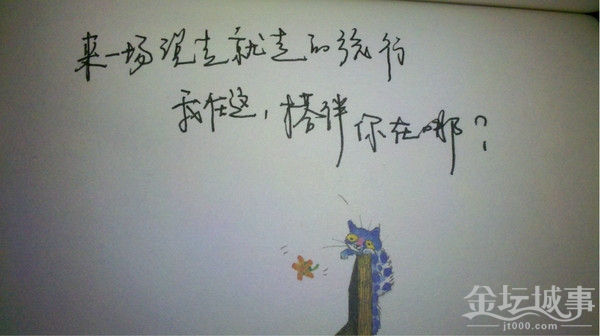 来一场说走就走的旅行
我在这，搭伴你在哪？
金坛城事
jt000.com